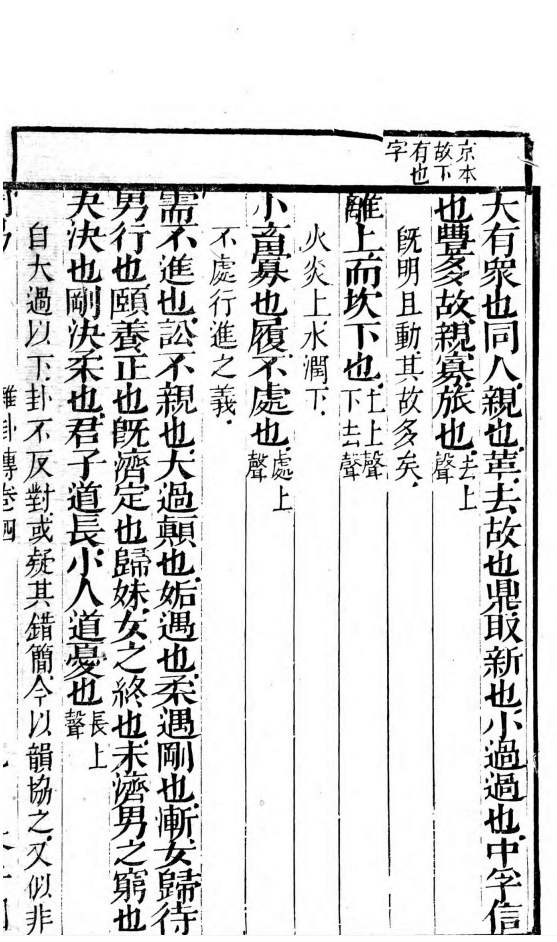 京本
故下
有也
字
大有衆也同人親也革去故也鼎取新也小過過也中孚信
也豐多故親寡旅也去上聲
既明且動其故多矣
離上而坎下也上上聲下去聲
火炎上水潤下
小畜寡也履不處也處上聲
不處行進之義
需不進也訟不親也大過顛也姤遇也柔遇剛也漸女歸待
男行也頤養正也既濟定也歸妹女之終也未濟男之窮也
夬決也剛決柔也君子道長小人道憂也長上聲
自大過以下卦不反對或疑其錯簡今以韻協之又似非
雜卦傳卷四